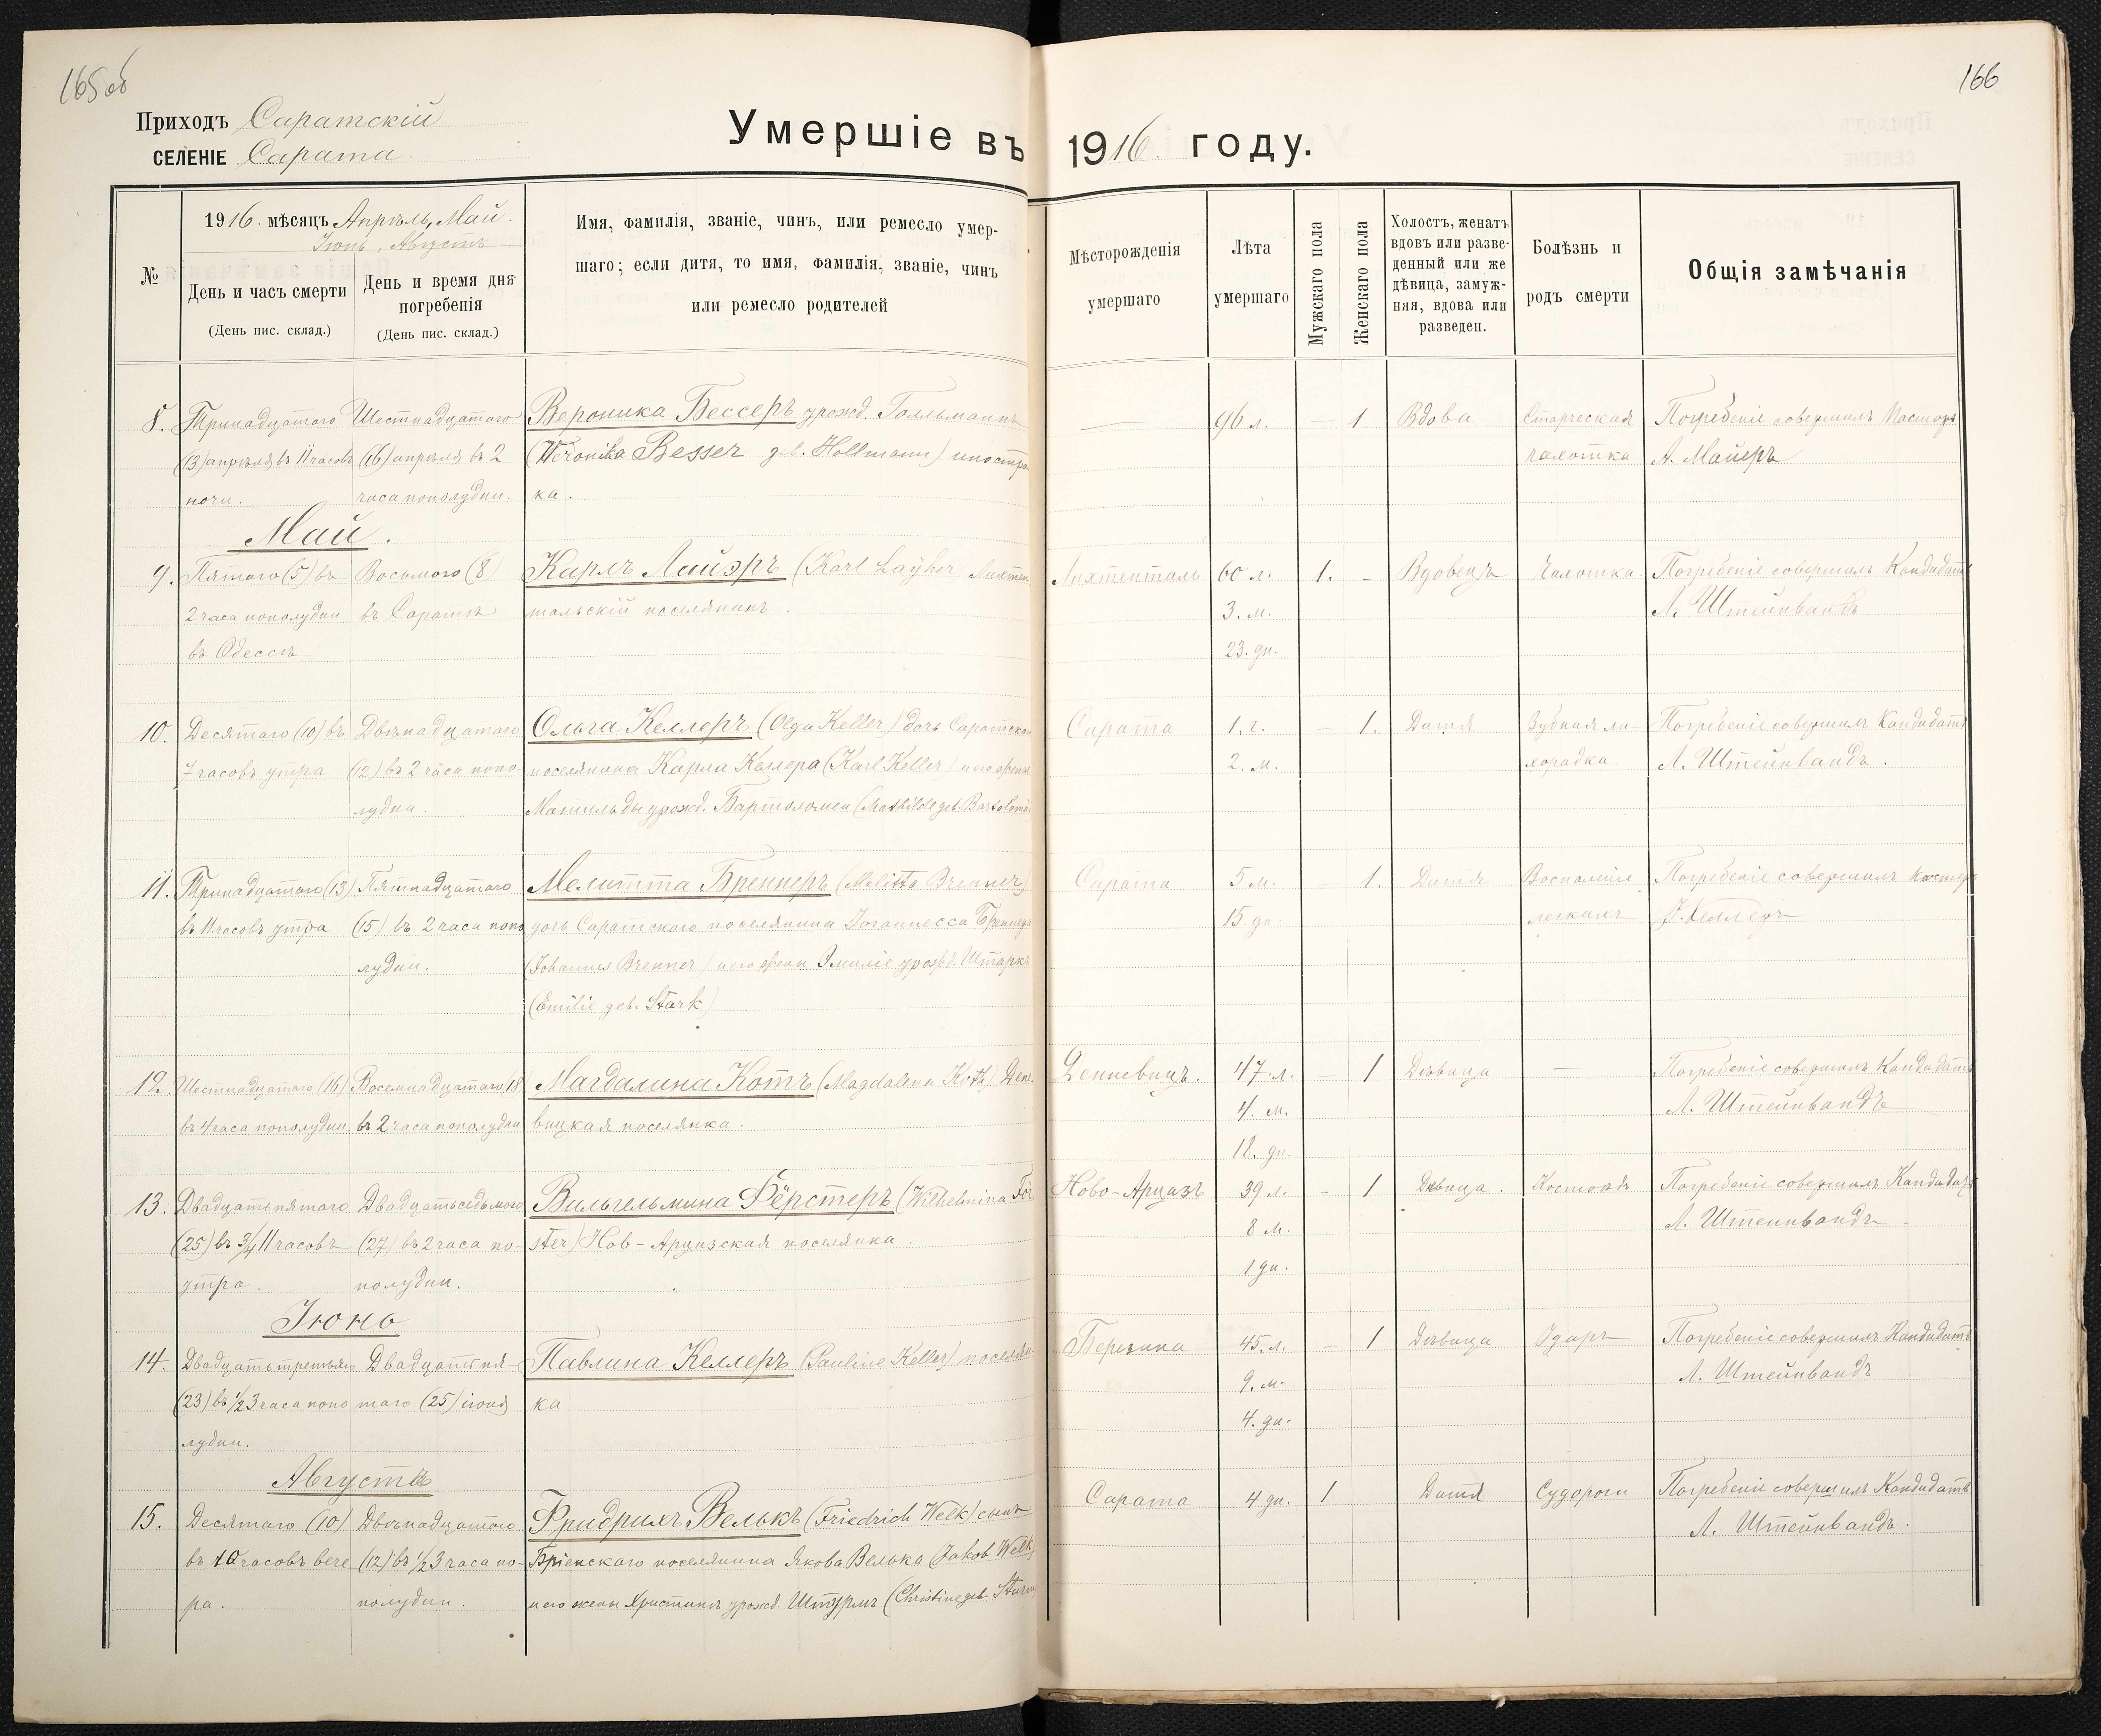 165 об
166
Приходъ Саратскій
СЕЛЕНІЕ Сарата.
Умершіе въ 1916 году.
№
1916. мѣсяцъ Апрѣль, Май.
Іюнь, Августъ
День и часъ смерти
(День пис. склад.)
День и время дня
погребенія
(День пис. склад.)
Имя, фамилія, званіе, чинъ, или ремесло умер-
шаго; если дитя, то имя, фамилія, званіе, чинъ
или ремесло родителей
Мѣсторожденія
умершаго
Лѣта
умершаго
Мужскаго пола
Женскаго пола
Холостъ, женатъ
вдовъ или разве-
денный или же
дѣвица, замуж-
няя, вдова или
разведен.
Болѣзнь и
родъ смерти
Общія замѣчанія
8.
Тринадцатаго
(13) апрѣля въ 11 часовъ
ночи.
Шестнадцатаго
(16) апрѣля въ 2
часа пополудни.
Вероника Бессеръ урожд. Голльманнъ
(Weronika Besser geb. Hollmann) иностра
ка.
—
96 л.
—
1
Вдова
Старческая
чахотка
Погребеніе совершилъ Пасторъ
А. Майеръ
Май.
9.
Пятаго (5) въ
2 часа пополудни
въ Одессѣ
Восьмого (8)
въ Саратѣ
Карлъ Лайэръ (Karl Layher) Лихтен
тальскій поселянинъ.
Лихтенталь
60 л.
3. м.
23. дн.
1.
-
Вдовецъ
Чахотка.
Погребеніе совершилъ Кандидатъ
Л. Штейнвандъ
10.
Десятаго (10) въ
7 часовъ утра
Двѣнадцатаго
(12) въ 2 часа попо-
лудни.
Ольга Келлеръ (Olga Keller) дочь Саратскаго
поселянина Карла Келлера (Karl Keller) и его жены
Матильды урожд. Бартоломеи (Mathilde geb. Bartolomäi
Сарата
1. г.
2. м.
–
1.
Дитя
Зубная ли-
хорадка.
Погребеніе совершилъ Кандидатъ
Л. Штейнвандъ.
11.
Тринадцатаго (13)
въ 11 часовъ утра
Пятнадцатаго
(15) въ 2 часа попо
лудни.
Мелитта Бреннеръ (Melitta Brenner)
дочь Саратскаго поселянина Іоганнесса Бреннера
(Johannes Brenner) и его жены Эмиліе урожд. Штаркъ
(Emilie geb. Stark)
Сарата
5 м.
15. дн.
1.
Дитя
Воспаленіе
легкихъ
Погребеніе совершилъ пасторъ
Келлеръ
12.
Шестнадцатаго (16)
въ 4 часа пополудни
Восемнадцатаго (18
въ 2 часа пополудни
Магдалина Котъ (Magdalena Koth) Дене
вицкая поселянка.
Денневицъ.
47. л.
4. м.
18. дн.
–
1
Дѣвица
—
Погребеніе совершилъ Кандидатъ
Л. Штейнвандъ
13.
Двадцатьпятаго
(25) въ 3/4 11 часовъ
утра.
Двадцатьседьмого
(27) въ 2 часа по-
полудни.
Вильгельмина Фёрстеръ (Wilhelmina För
ster) Нов-Арцизская поселянка.
Ново-Арцизъ
39 л.
8 м.
1 дн.
-
1
Дѣвица.
Погребеніе совершилъ Кандидатъ
Л. Штейнвандъ
Іюнь
14.
Двадцатьтретьяго
(23) въ 1/2 3 часа попо
лудни.
Двадцатьпя-
таго (25) іюня
Павлина Келлеръ (Pauline Keller) поселян-
ка
Березина
45. л.
9. м.
4. дн.
–
1
Дѣвица
Ударъ
Погребеніе совершилъ Кандидатъ
Л. Штейнвандъ
Августъ
15.
Десятаго (10)
въ 10 часовъ вече
ра.
Двѣнадцатаго
(12) въ 1/2 3 часа по-
полудни.
Фридрихъ Велькъ (Friedrich Welk) сынъ
Бріенскаго поселянина Якова Велька (Jakob Welk)
и его жены Христины урожд. Штурмъ (Christine geb. Sturm
Сарата
4 дн.
1
Дитя
Судороги
Погребеніе совершилъ Кандидатъ
Л. Штейнвандъ.